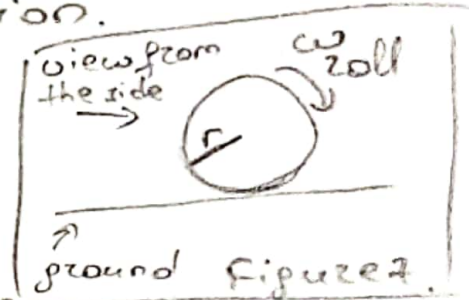 ion.
view from
the side
ω
roll
r
ground Figure 7.